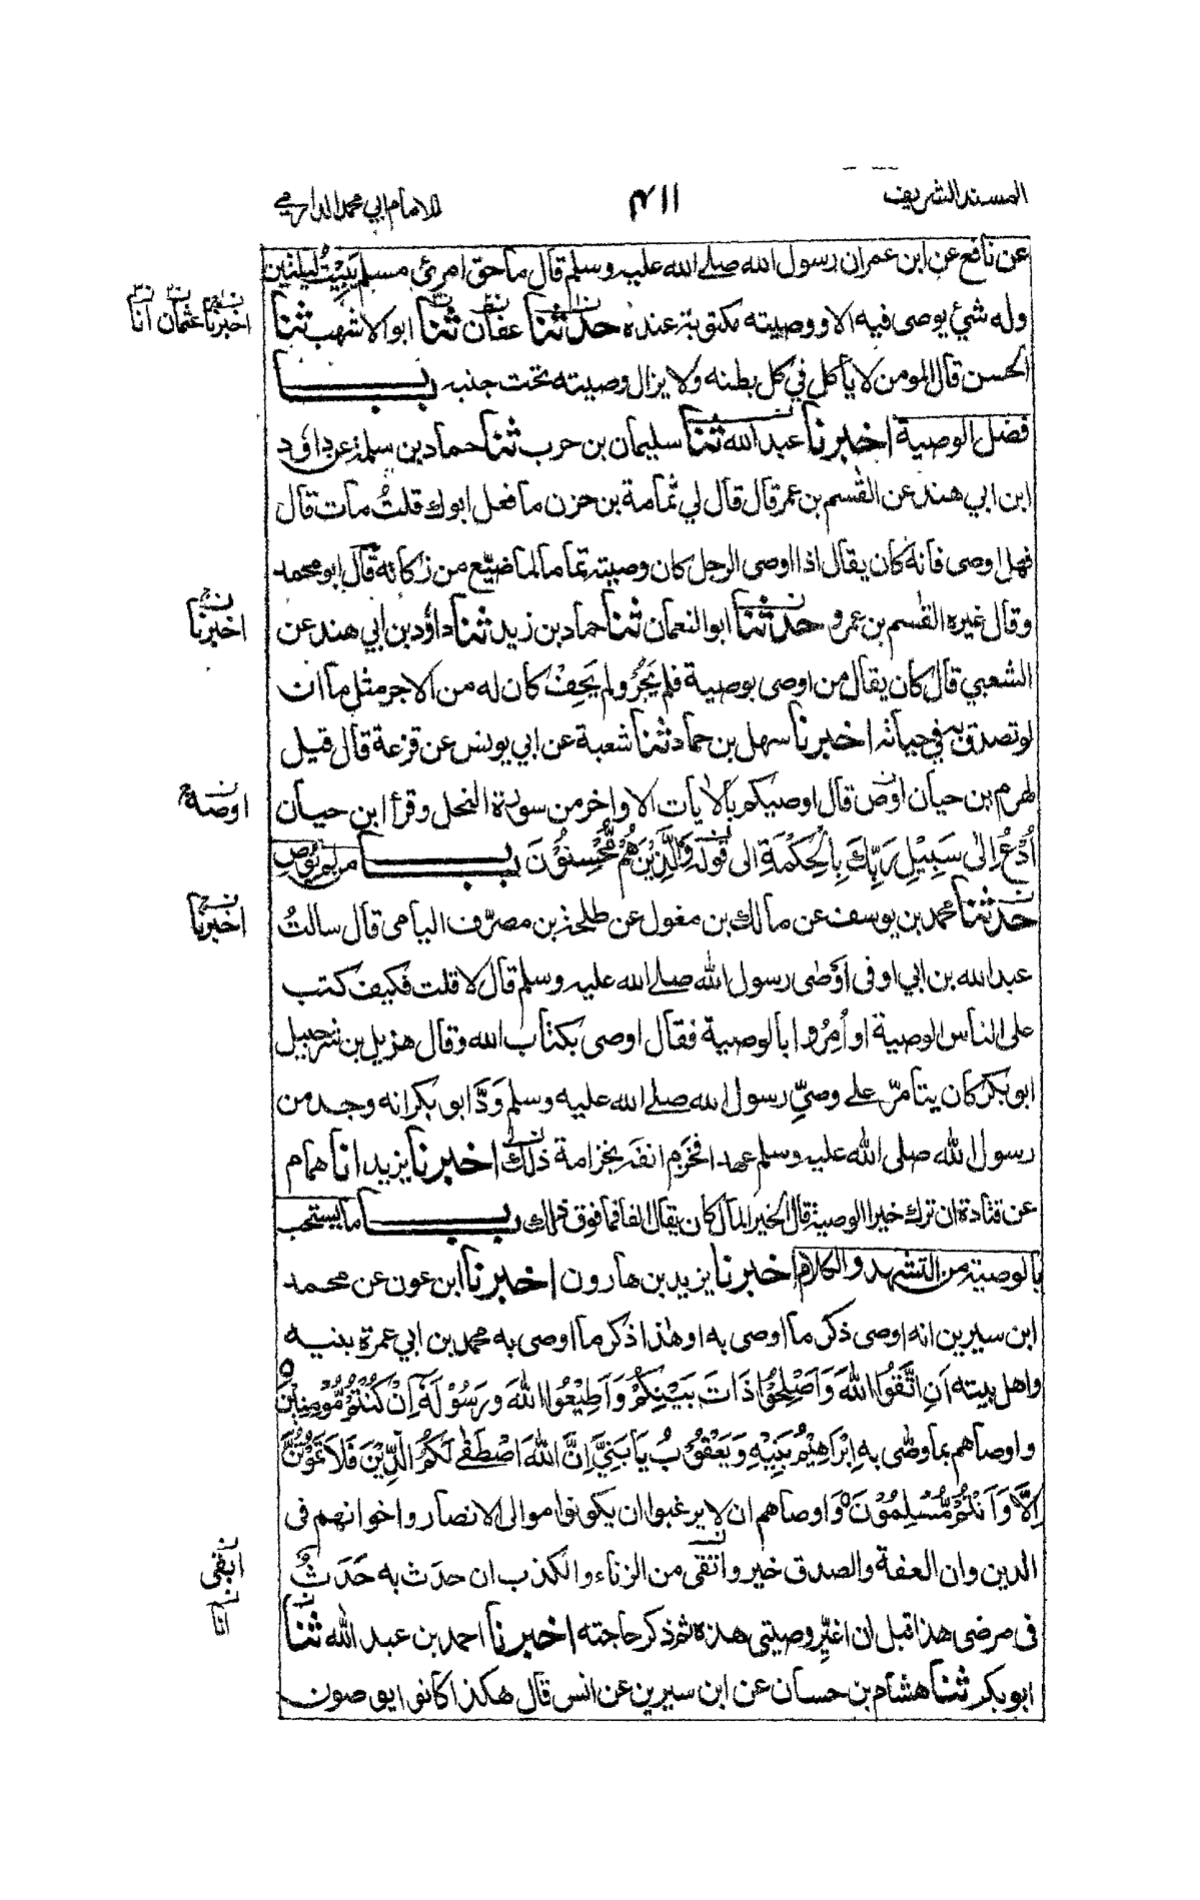 المسند الشريف ٤١١ للامام ابي محمد الدارمي
عن نافع عن ابن عمر ان رسول الله صلے الله عليه وسلم قال ما حق امرئ مسلم يَبِيْتُ ليلتين
وله شئ يوصى فيه الا و وصيته مكتوبة عنده حدثنا عفان ثنا ابو الاشهب ثنا
اخبرنا عثمان انا
الحسن قال المومن لا يأكل في كل بطنه ولا يزال وصيته تحت جنبه باب
فضل الوصية اخبرنا عبد الله ثنا سليمان بن حرب ثنا حماد بن سلمة عن داؤد
ابن ابي هند عن القٰسم بن عمر قال قال لي ثمامة بن حزن ما فعل ابوك قلتُ مات قال
فهل اوصى فانه كان يقال اذا اوصى الرجل كان وصيته تماما لما ضيّع من زكاته قال ابو محمد
وقال غيره القٰسم بن عمرو حدثنا ابو النعمان ثنا حماد بن زيد ثنا داؤد بن ابي هند عن
اخبرنا
الشعبي قال كان يقال من اوصى بوصية فلم يَجُرْ ولم يَحِفْ كان له من الاجر مثل ما ان
لو تصدق به في حياته اخبرنا سهل بن حماد ثنا شعبة عن ابي يونس عن قزعة قال قيل
لهرم بن حيان اوص قال اوصيكم بالاٰيات الاواخر من سورة النحل وقرأ ابن حيان
اوصه
اُدْعُ اِلٰى سَبِيْلِ رَبِّكَ بِالْحِكْمَةِ الى قوله وَالَّذِيْنَ هُمْ مُّحْسِنُوْنَ باب من لم يوص
حدثنا محمد بن يوسف عن مالك بن مغول عن طلحة بن مصرّف اليامى قال سالتُ
اخبرنا
عبد الله بن ابي اوفى اَوْصٰى رسول الله صلے الله عليه وسلم قال لا قلت فكيف كتب
على الناس الوصية او اُمِرُوا بالوصية فقال اوصى بكتاب الله وقال هزيل بن شرحبيل
ابو بكر كان يتأمرّ علے وصيِّ رسول الله صلے الله عليه وسلم وَدَّ ابو بكر انه وجد من
رسول الله صلى الله عليه وسلم عهدا فخزم انفه بخزامة ذلك اخبرنا يزيد انا همام
عن قتادة ان ترك خيرا الوصية قال الخير المال كان يقال الفا فما فوق ذلك باب ما يستحب
بالوصية من التشهد والكلام اخبرنا يزيد بن هارون اخبرنا ابن عون عن محمد
ابن سيرين انه اوصى ذكر ما اوصى به او هٰذا ذكر ما اوصى به محمد بن ابي عمرة بنيه
واهل بيته اَنِ اتَّقُوا اللّٰهَ وَاَصْلِحُوْا ذَاتَ بَيْنِكُمْ وَاَطِيْعُوا اللّٰهَ وَرَسُوْلَهٗ اِنْ كُنْتُمْ مُّؤْمِنِيْنَ
واوصاهم بما وصّٰى بِهِ اِبْرَاهِيْمُ بَنِيْهِ وَيَعْقُوْبُ يَا بَنِيَّ اِنَّ اللّٰهَ اصْطَفٰى لَكُمُ الدِّيْنَ فَلَا تَمُوْتُنَّ
اِلَّا وَاَنْتُمْ مُّسْلِمُوْنَ واوصاهم ان لا يرغبوا ان يكونوا موالى الانصار واخوانهم فى
الدين وان العفة والصدق خير واتقى من الزناء والكذب ان حدث به حَدَثٌ
ابقى
فى مرضى هذا قبل ان اغيّر وصيتى هذه ثم ذكر حاجته اخبرنا احمد بن عبد الله ثنا
انا
ابو بكر ثنا هشام بن حسان عن ابن سيرين عن انس قال هكذا كانوا يوصون